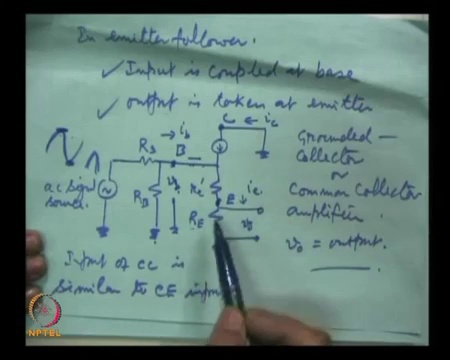 In emitter follower.
✓ Input is coupled at base
✓ output is taken at emitter
C ← ic
→ ib
Rs
B
ac signal
source.
RB
re'
E ↓ ie
RE
vo
Grounded –
Collector
or
Common Collector
amplifier.
vo = output.
Input of CC is
similar to CE
NPTEL